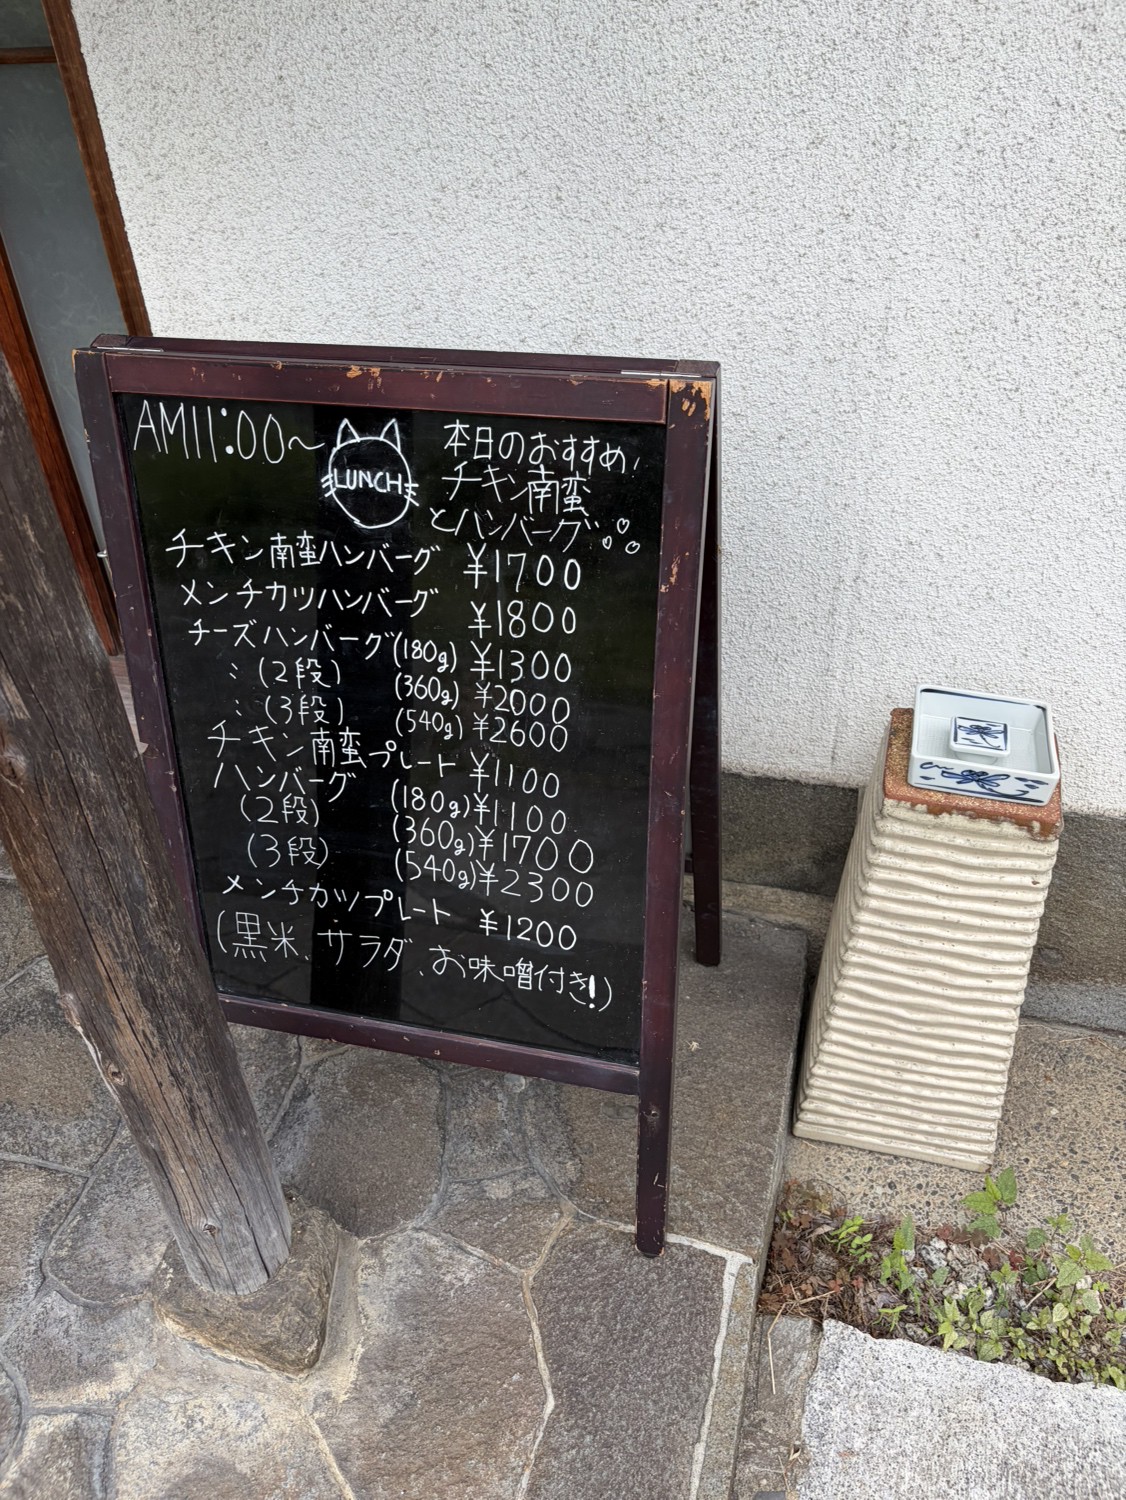 AM11:00〜
LUNCH
本日のおすすめ!
チキン南蛮
とハンバーグ
チキン南蛮ハンバーグ ¥1700
メンチカツハンバーグ ¥1800
チーズハンバーグ(180g) ¥1300
〃(2段) (360g) ¥2000
〃(3段) (540g) ¥2600
チキン南蛮プレート ¥1100
ハンバーグ (180g) ¥1100
(2段) (360g) ¥1700
(3段) (540g) ¥2300
メンチカツプレート ¥1200
(黒米、サラダ、お味噌付き!)